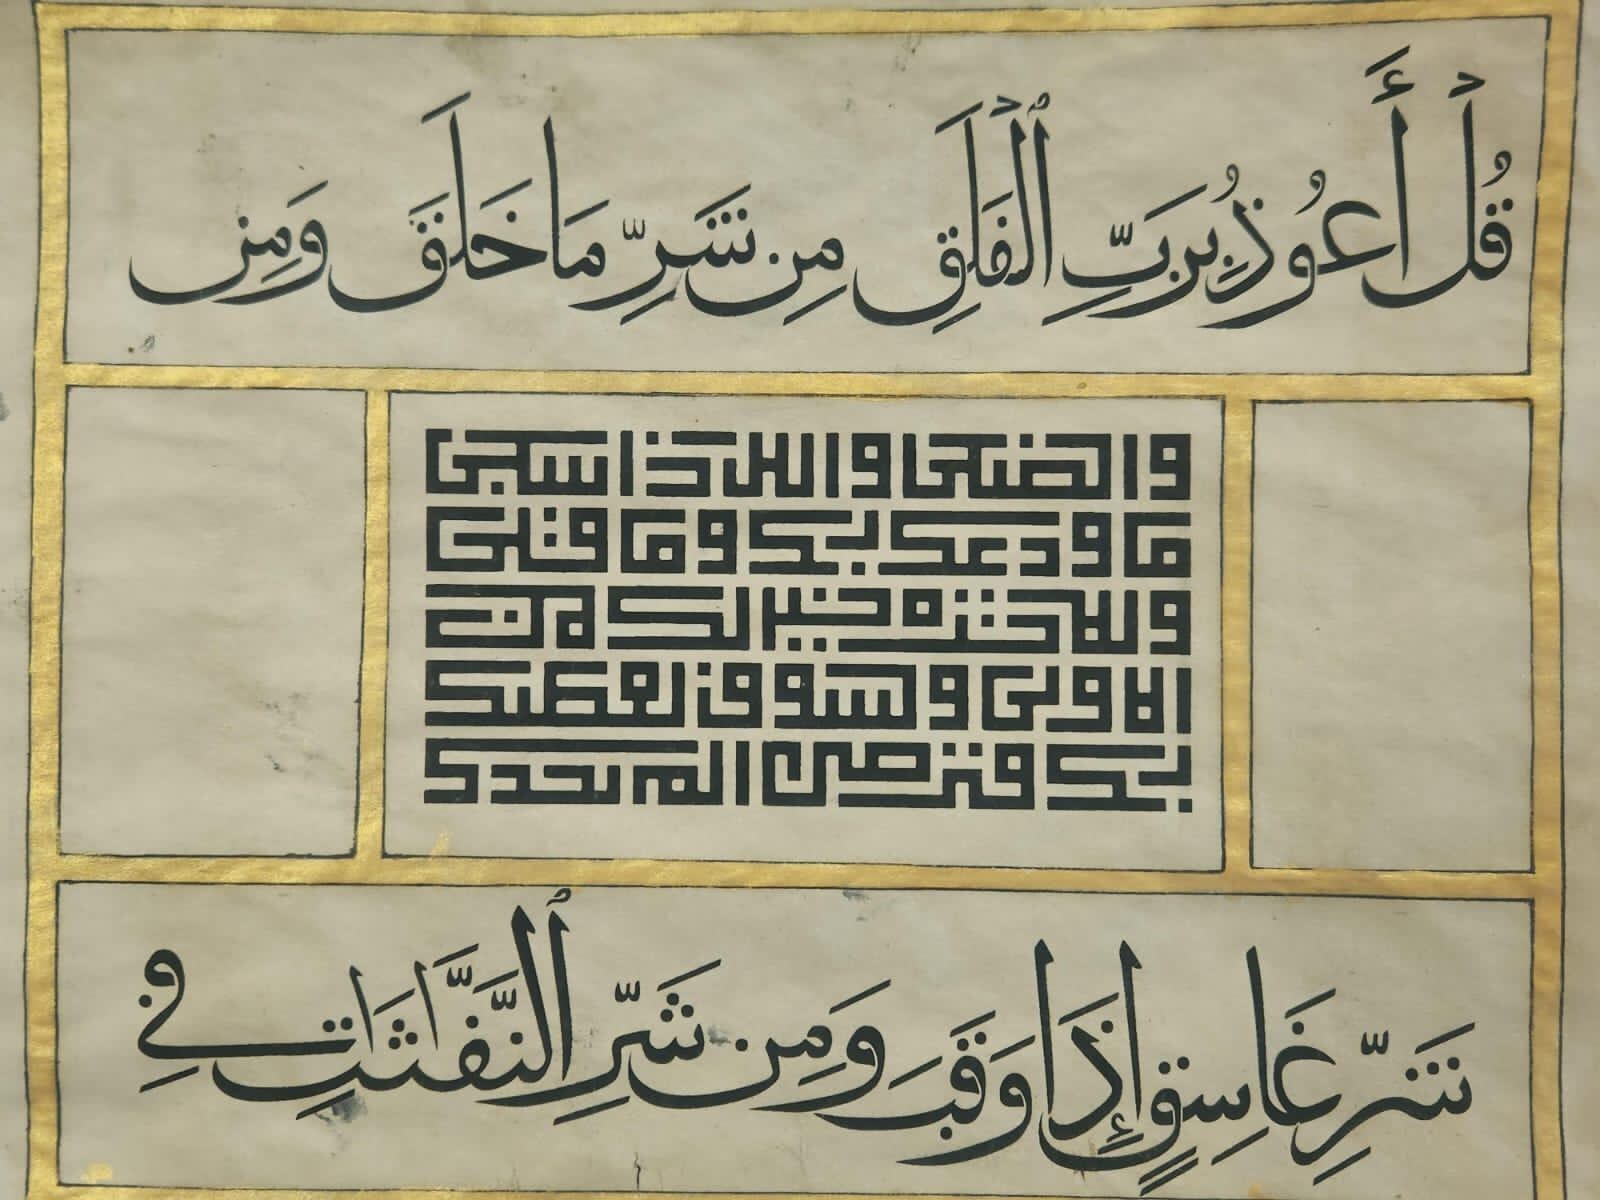 قُلْ أَعُوذُ بِرَبِّ ٱلْفَلَقِ مِن شَرِّ مَا خَلَقَ وَمِن
والضحى واليل اذا سجى
ما ودعك ربك وما قلى
وللاخرة خير لك من
الاولى ولسوف يعطيك
ربك فترضى الم يجدك
شَرِّ غَاسِقٍ إِذَا وَقَبَ وَمِن شَرِّ ٱلنَّفَّاثَاتِ فِي